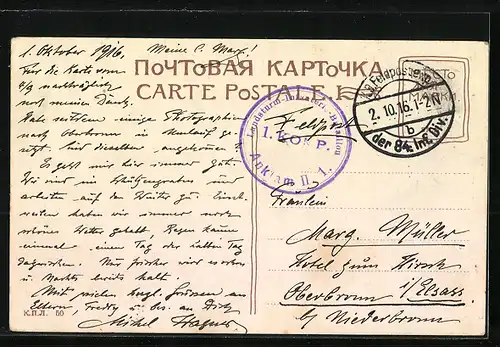 1. Oktober 1916. Meine l. Marg!
ПОЧТОВАЯ КАРТОЧКА
CARTE POSTALE
Für die Karte vom
nachträglich
noch meinen Dank.
Habe seither einige Photographien
nach Oberbronn in
hast dieselben angekommen
Es geht mir immer gut.
Wir sind im Schützengraben und
arbeiten auf den Winter zu.
weilen haben wir immer noch
schönes Wetter gehabt, Regen kaum
einmal einen Tag der letzten Tag
dazwischen. Nur frischer wird es eben
u. Nachts bereits kalt.
Mit vielen herzl. Grüssen an
Eltern, Freddy u. bes. an Dich
Michel
К.П.Л. 50
Landsturm-Infanterie-Bataillon
1. KOMP.
Anklam II. 1.
Feldpost
K.D. Feldpostexp.
2. 10. 16. 1-2 N
b
der 84. Inf. Div.
Fräulein
Marg. Müller
Hotel zum Hirsch
Oberbronn i/Elsass.
b/ Niederbronn